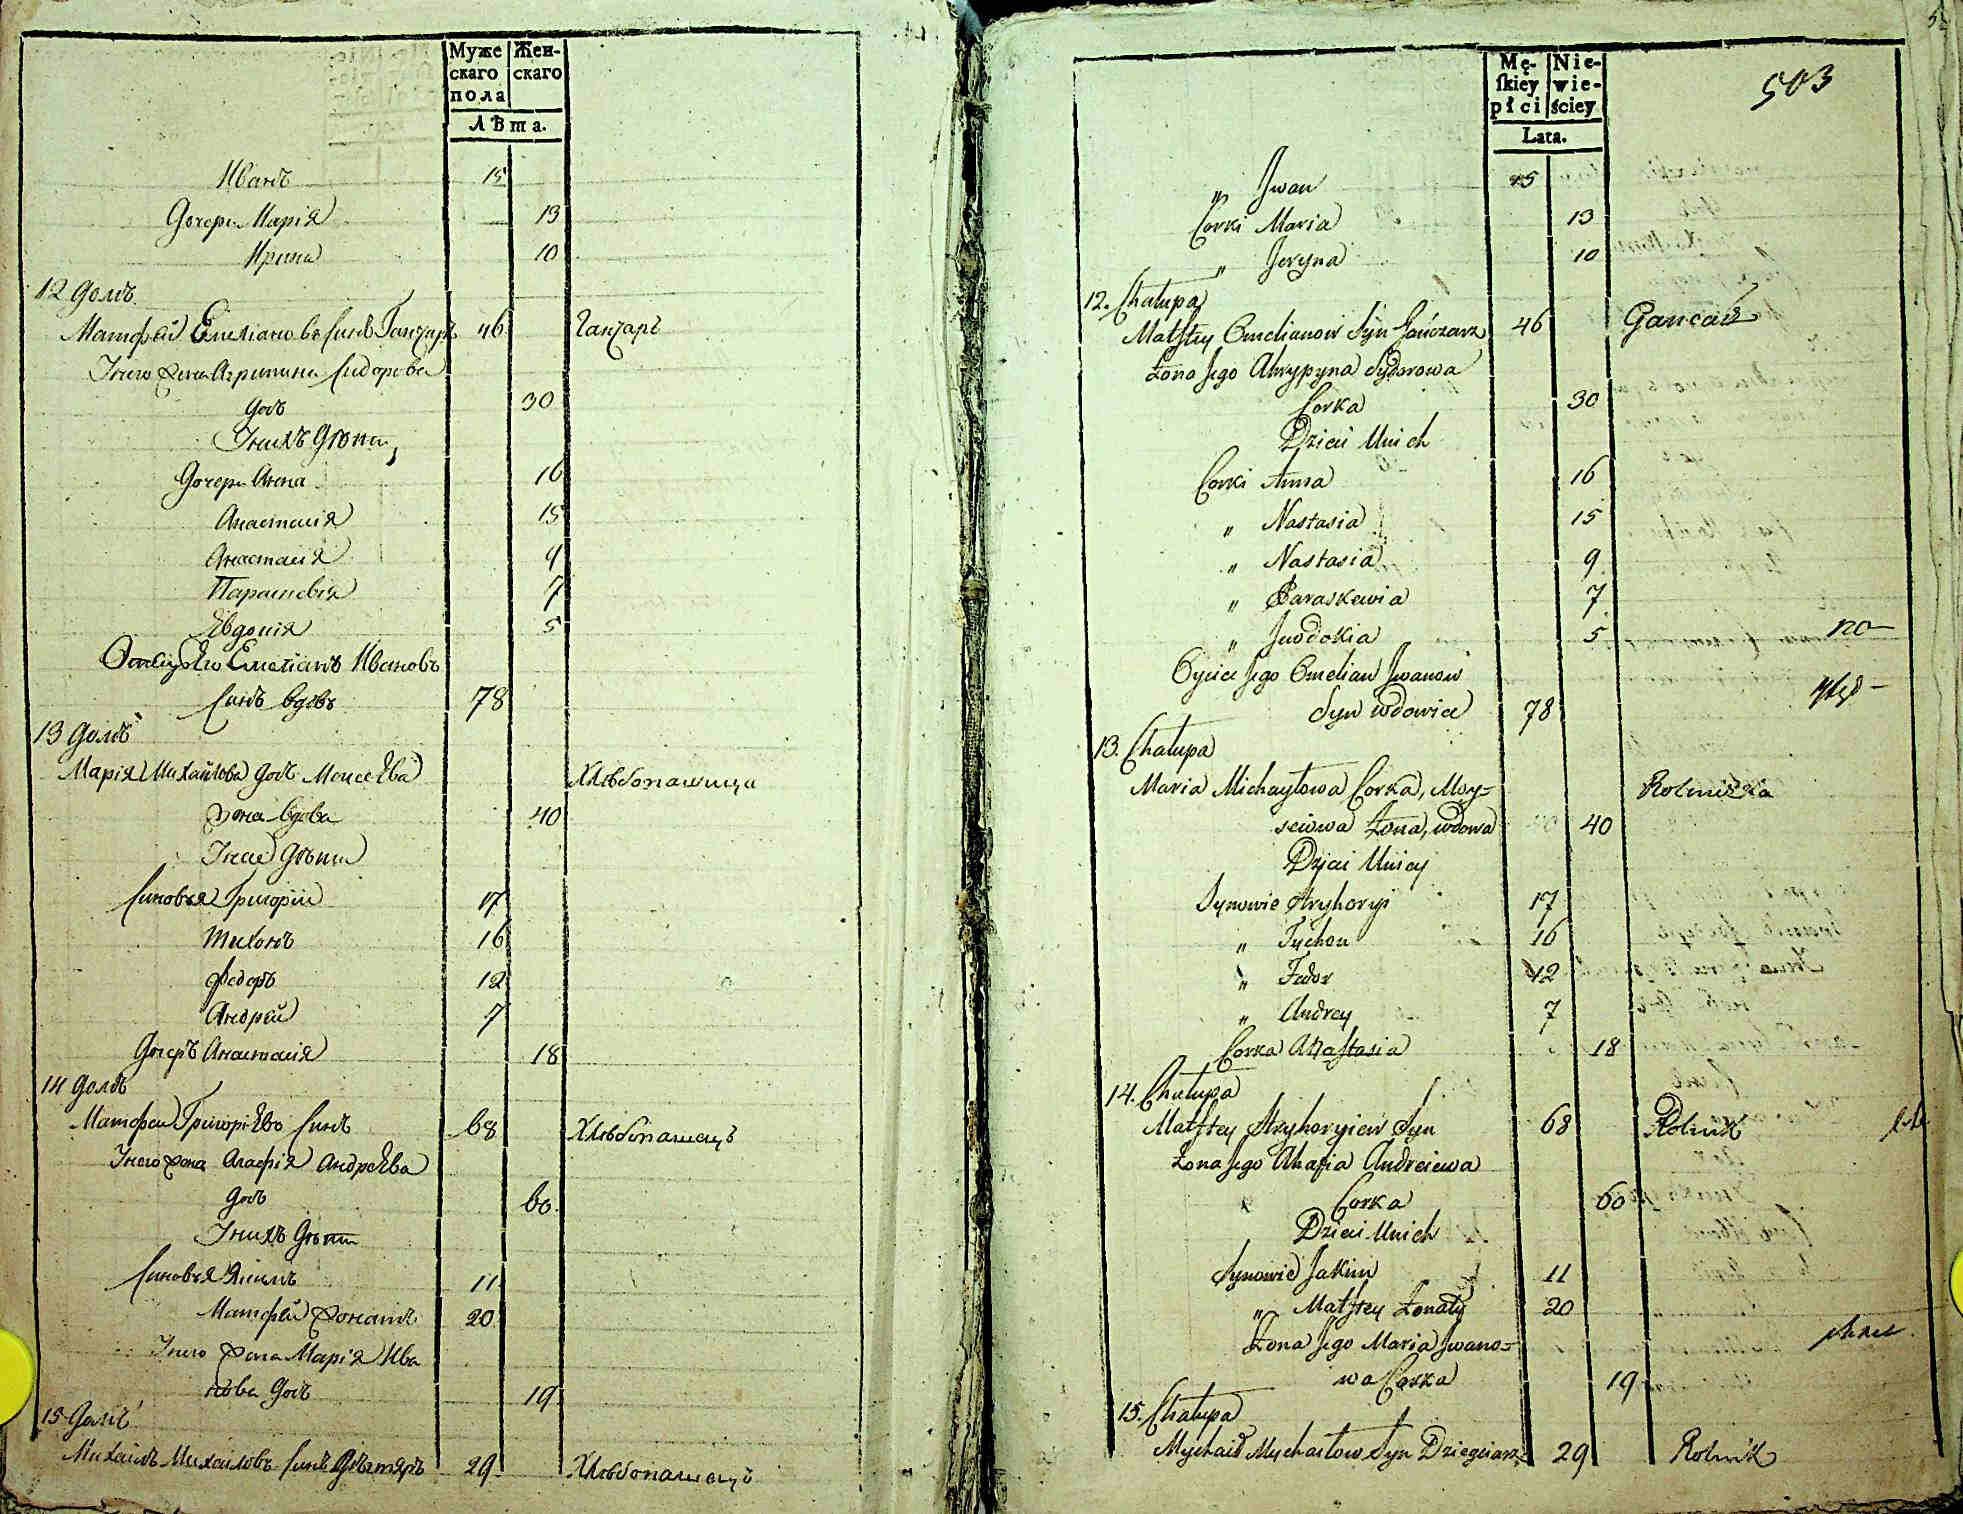 Муже
скаго
пола
Жен-
скаго
лѣта.
Иванъ 15
Дочери Марія 13
Ирина 10
12 домъ
Матфей Емелиановъ синъ Ганчаръ 46 Ганчаръ
У него жена Агрипина Сидорова
дочь 30
У нихъ дѣти,
Дочери Анна 16
Анастасія 15
Анастасія 9
Параскевія 7
Евдокія 5
Отецъ его Емелианъ Ивановъ
синъ вдовъ 78
13 домъ
Марія Михайлова дочь Моисеева Хлѣбопашица
жена вдова 40
У нее дѣти
Синовья Григорій 17
Тихонъ 16
Федоръ 12
Андрей 7
Дочеръ Анастасія 18
14 домъ
Матфей Григоріевъ синъ 68 Хлѣбопашецъ
У него жена Агафія Андреева
дочь 60
У нихъ дѣти
Синовья Якимъ 11
Матфей жонатъ 20
У него жена Марія Ива
нова дочь 19
15 домъ
Михаилъ Михаиловъ синъ Дегтяръ 29 Хлѣбопашецъ
Mę-
skiey
płci
Nie-
wie-
ściey
Lata.
503
„ Jwan 15
Corki Maria 13
„ Jeryna 10
12. Chałupa
Matfiey Omelianow Syn Hańczarz 46 Gancarz
Żona Jego Ahrypyna Sydorowa
Corka 30
Dzieci Unich
Corki Anna 16
„ Nastasia 15
„ Nastasia 9
„ Paraskewia 7
„ Jewdokia 5
Oyciec Jego Omelian Jwanow
Syn wdowiec 78
13. Chałupa
Maria Michayłowa Corka, Moy-
seiowa Żona, wdowa 40 Rolniczka
Dzieci Unicy
Synowie Hryhoryi 17
„ Tychon 16
„ Fedor 12
„ Andrey 7
Corka Anastasia 18
14. Chałupa
Matfiey Hryhoryiew Syn 68 Rolnik
Żona Jego Ahafia Andreiewa
Corka 60
Dzieci Unich
Synowie Jakim 11
„ Matfiey Żonaty 20
Żona Jego Maria Jwano-
wa Corka 19
15. Chałupa
Mychaił Mychaiłow Syn Dziegciarz 29 Rolnik